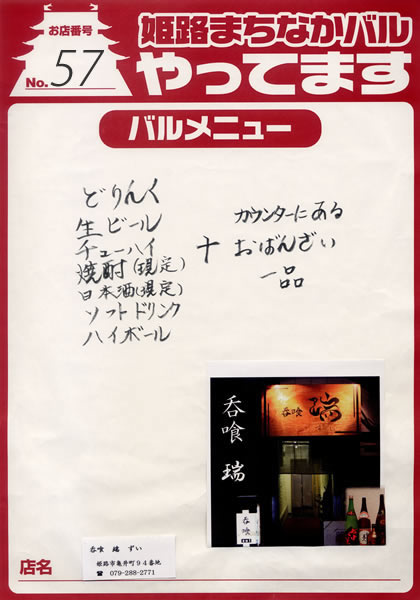 お店番号
No. 57
姫路まちなかバル
やってます
バルメニュー
どりんく
生ビール
チューハイ
焼酎(現定)
日本酒(現定)
ソフトドリンク
ハイボール
+
カウンターにある
おばんざい
一品
呑喰 瑞
呑喰 瑞
呑喰
店名
呑喰 瑞 ずい
姫路市亀井町94番地
☎ 079-288-2771